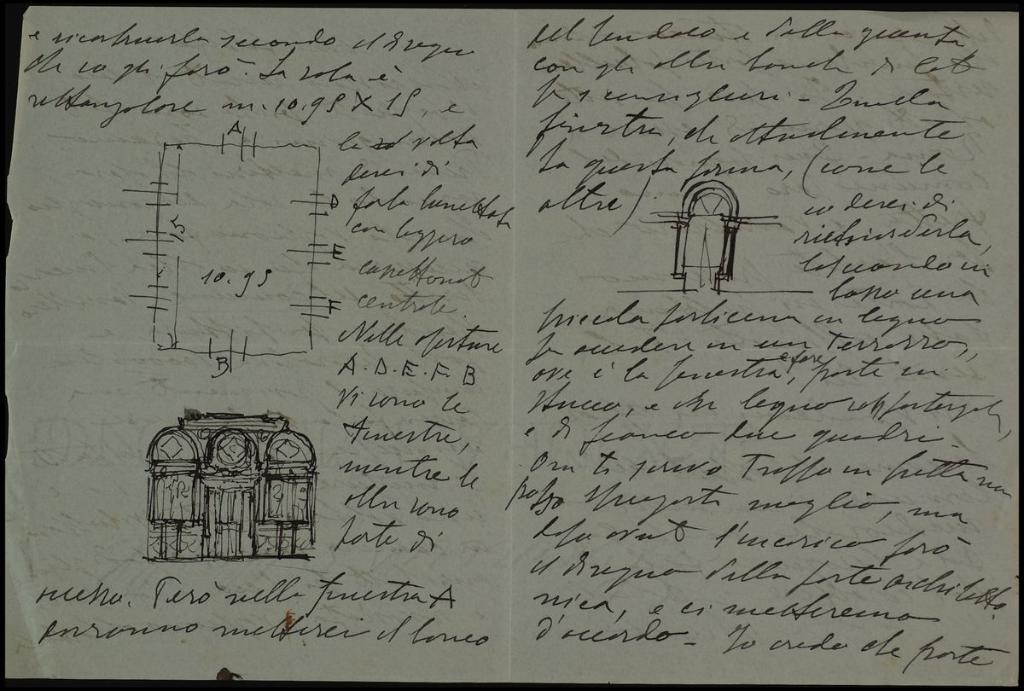 e ricostruirla secondo il disegno
che io gli farò. La sala è
rettangolare m. 10.95 X 15, e
A
la volta
deve di
forla lunettata
con leggero
cassettonat
centrale.
Nelle aperture
A. D. E. F. B
vi sono le
finestre,
mentre le
altre sono
porte di
D
E
F
15
10.95
B
mezzo. Però nella finestra A
dovranno metterci il banco
del Sindaco e della giunta
con gli altri banchi di
consiglieri - Quella
finestra, che attualmente
ha questa forma, (come le
altre)
io derei di
richiuderla,
lasciando in
basso una
piccola porticina in legno
per accedere in un Terrazzo,
ove è la finestra, fare parte in
stucco, e in legno
e di fianco due quadri
Ora ti scrivo Troppo in fretta non
posso spiegarti meglio, ma
l'incarico farò
il disegno della parte architetto-
nica, e ci metteremo
d'accordo - Io credo che parte